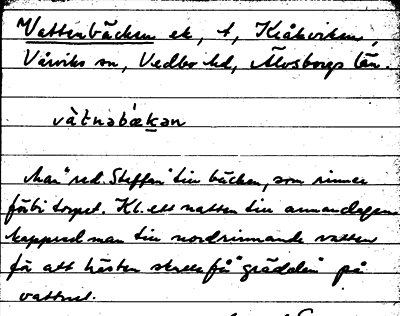 Vattenbäcken ek, t, Kråkviken,
Vårviks sn, Vedbo hd, Älvsborgs län.
vàt̄nəbæ̀kən
Man "red Steffan" till bäcken, som rinner
förbi torpet. Kl. ett natten till annandagen
kappred man till nordrinnande vatten
för att hästen skulle få "grädden" på
vattnet.